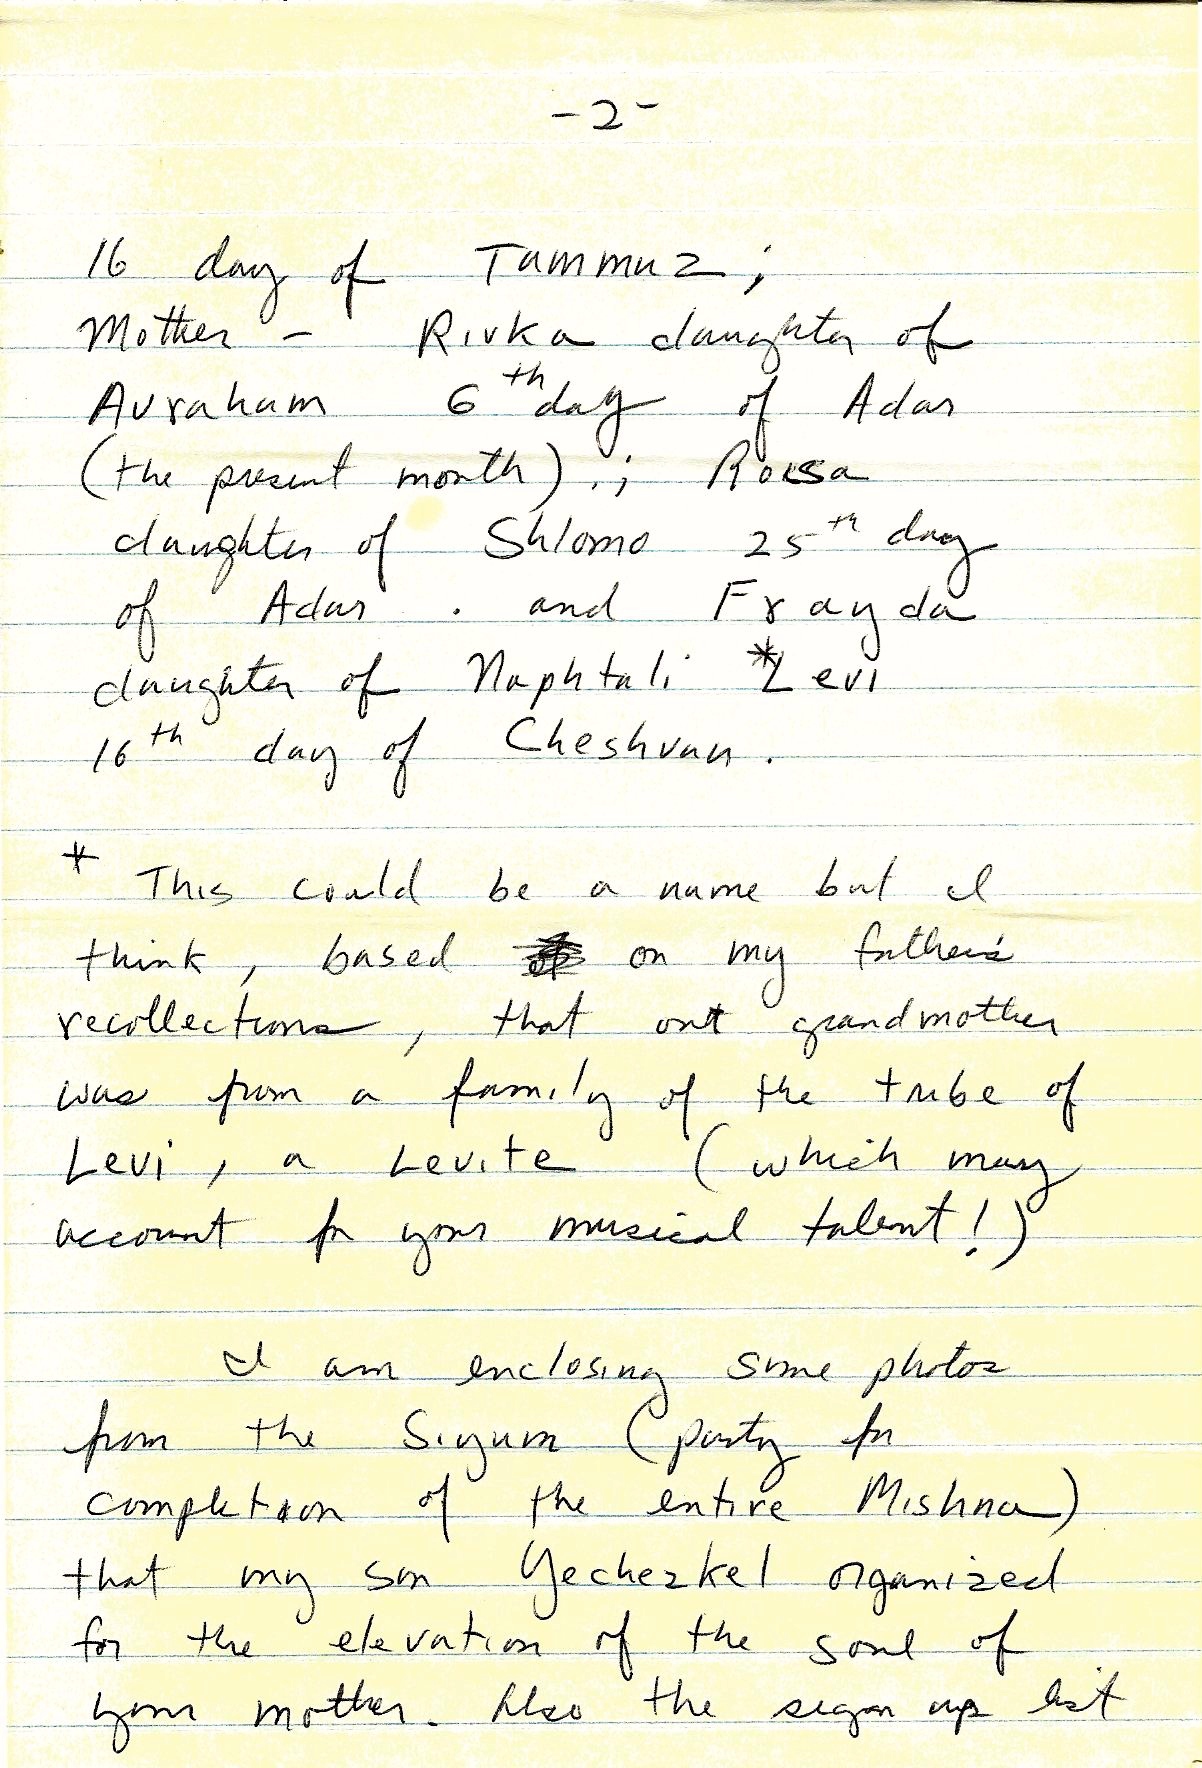 -2-
16 day of Tammuz;
Mother - Rivka daughter of
Avraham 6th day of Adar
(the present month).; Roisa
daughter of Shlomo 25th day
of Adar. and Frayda
daughter of Naphtali *Levi
16th day of Cheshvan.
* This could be a name but I
think, based on my father's
recollections, that our grandmother
was from a family of the tribe of
Levi, a Levite (which may
account for your musical talent!)
I am enclosing some photos
from the Siyum (party for
completion of the entire Mishna)
that my son Yechezkel organized
for the elevation of the soul of
your mother. Also the sign up list